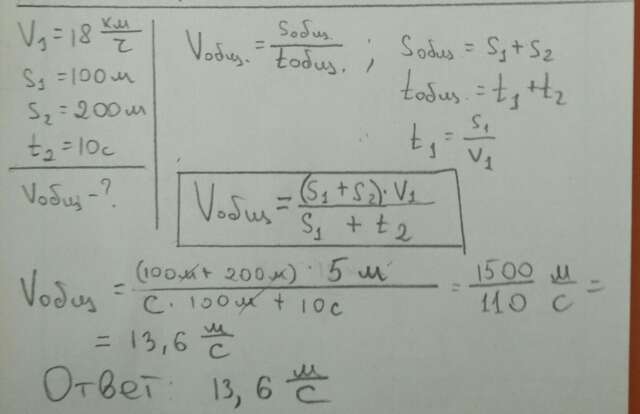 V₁ = 18 км/ч
S₁ = 100 м
S₂ = 200 м
t₂ = 10 с
Vобщ - ?
Vобщ. = Sобщ. / tобщ. ; Sобщ = S₁ + S₂
tобщ. = t₁ + t₂
t₁ = S₁ / V₁
Vобщ = (S₁ + S₂) · V₁ / S₁ + t₂
Vобщ = (100м + 200м) · 5 м / с · 100м + 10с = 1500 / 110 м/с =
= 13,6 м/с
Ответ: 13,6 м/с